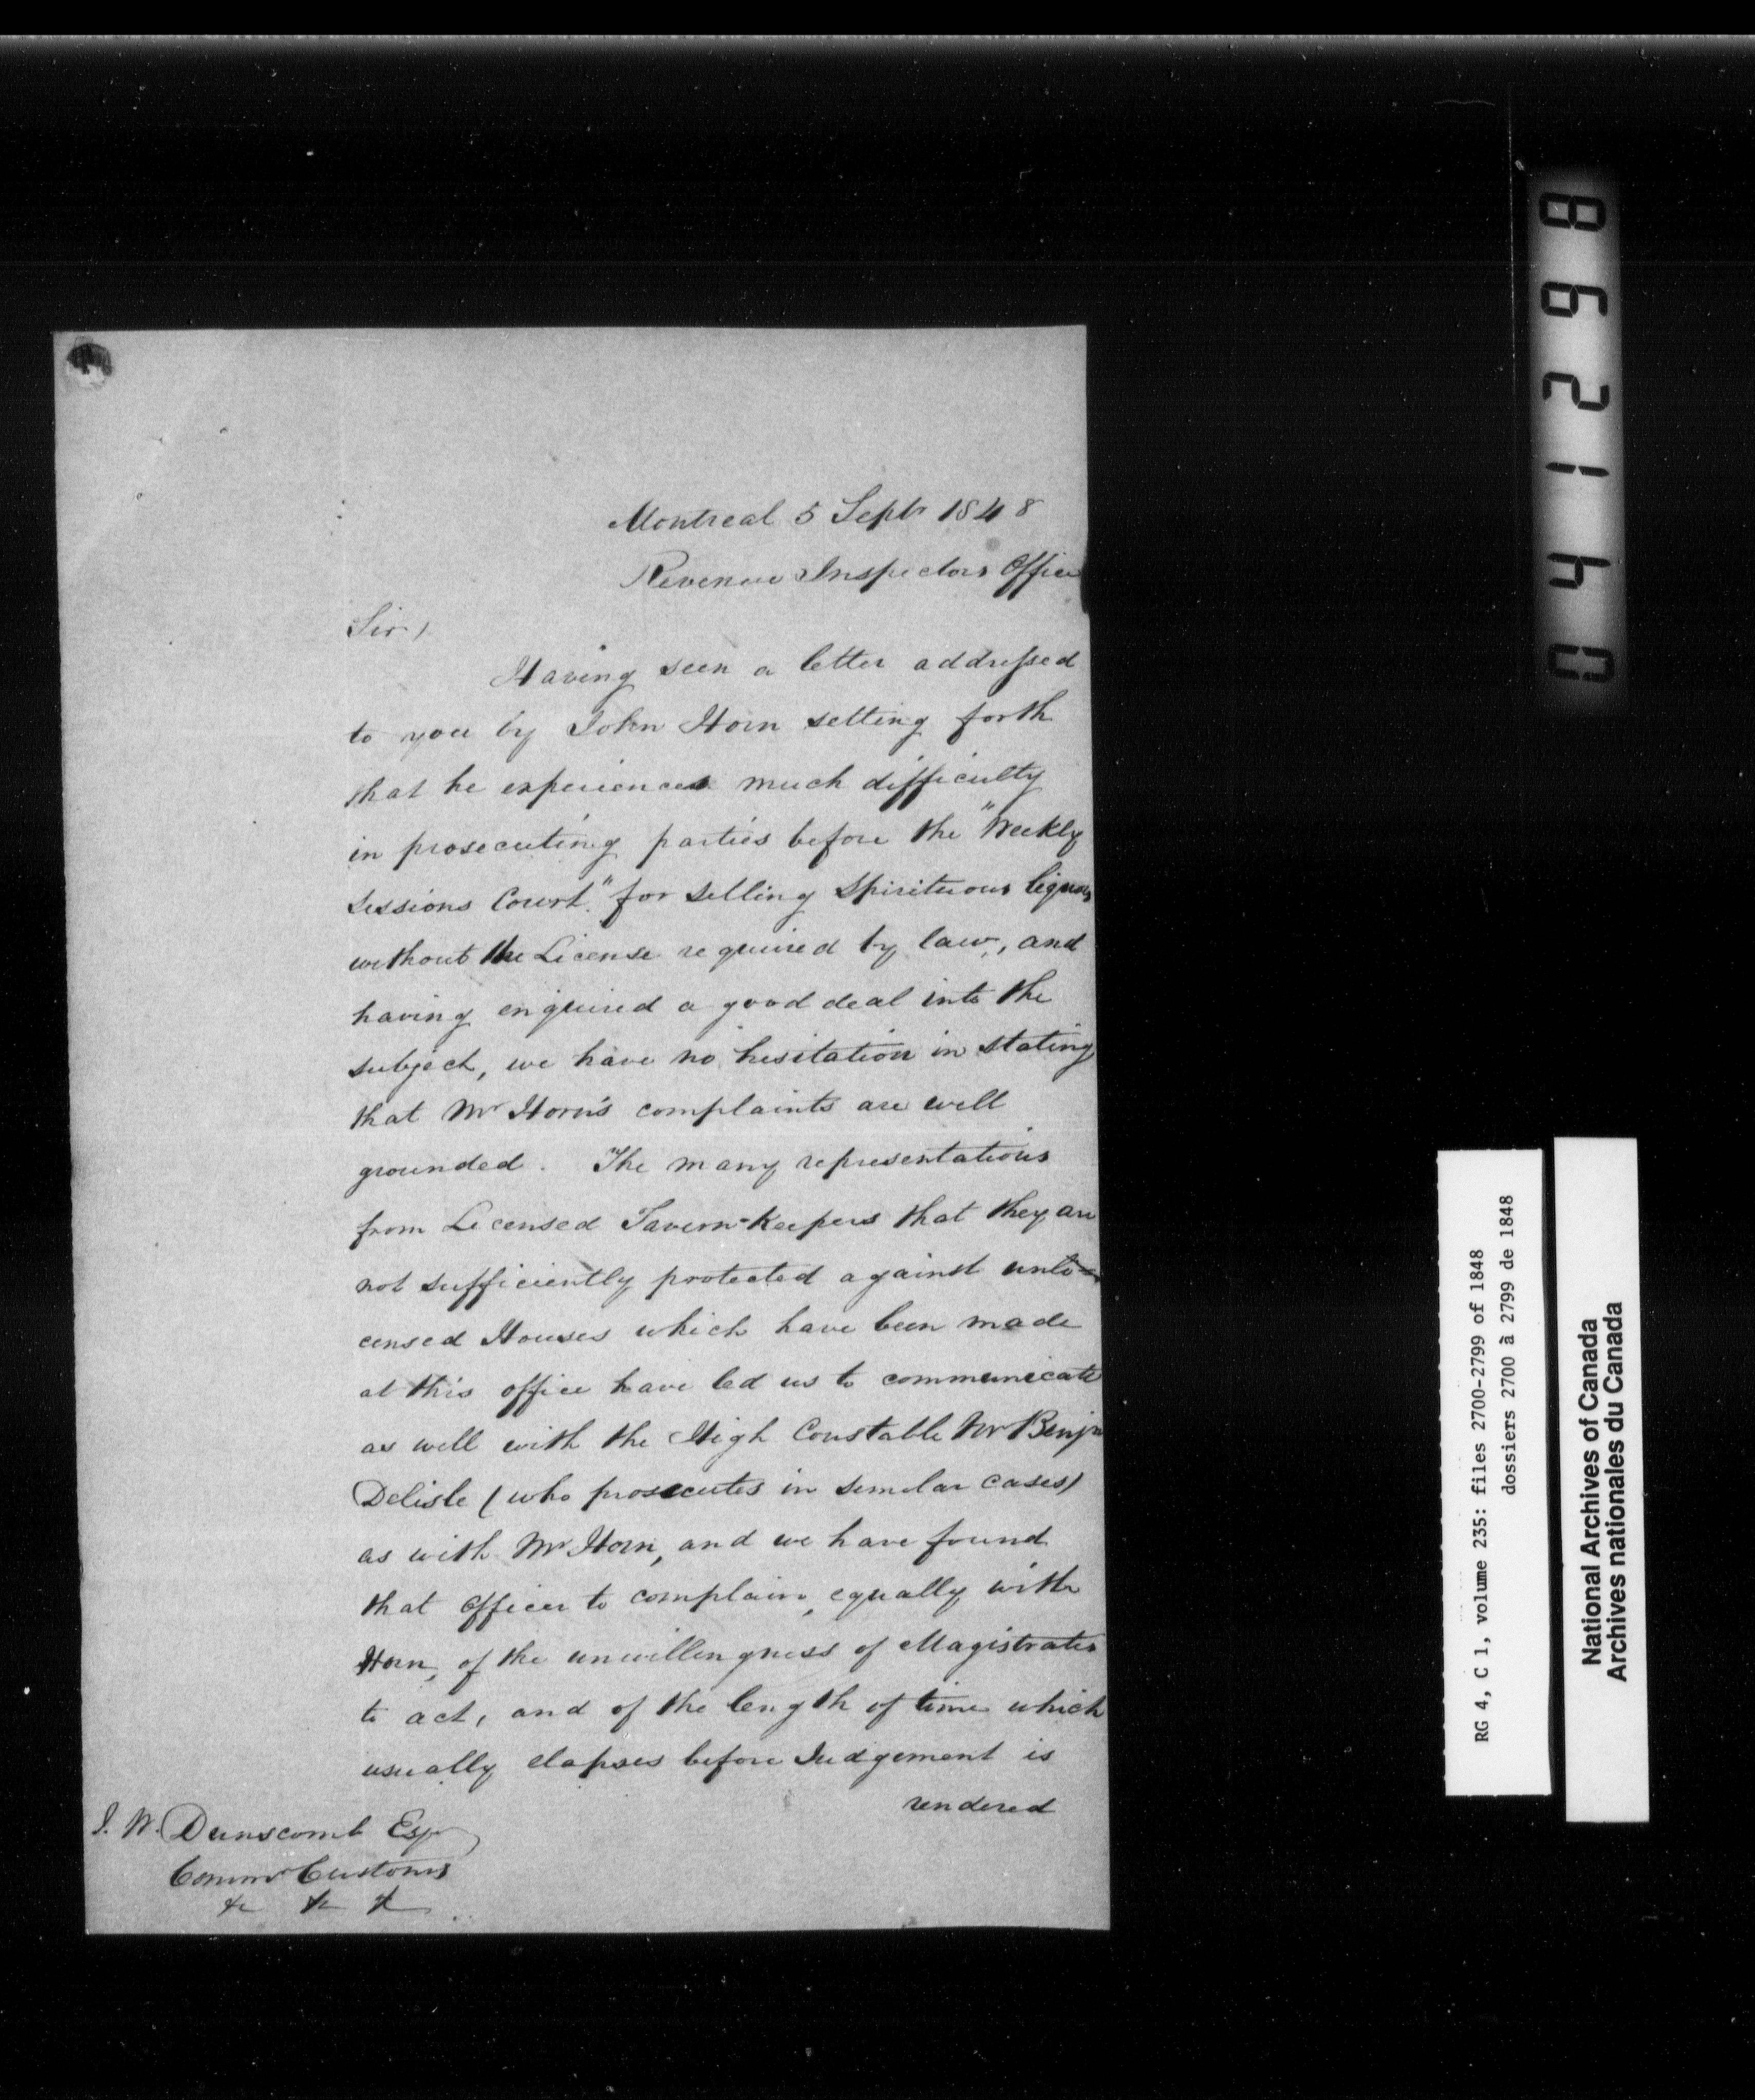 Montreal 5 Septr 1848
Revenue Inspectors Office
Sir,
Having seen a letter addressed
to you by John Horn setting forth
that he experiences much difficulty
in prosecuting parties before the "Weekly
Sessions Court." for selling Spirituous liquors
without the License required by law, and
having enquired a good deal into the
subject, we have no hesitation in stating
that Mr Horn's complaints are well
grounded. The many representations
from Licensed Tavern-Keepers that they are
not sufficiently protected against unli-
censed Houses which have been made
at this office have led us to communicate
as well with the High Constable Mr Benjn
Delisle (who prosecutes in similar cases)
as with Mr Horn, and we have found
that Officer to complain, equally with
Horn, of the unwillingness of Magistrates
to act, and of the length of time which
usually elapses before Judgement is
rendered
J. W. Dunscomb Esqr
Commr Customs
&c &c &c
041298
RG 4, C 1, volume 235: files 2700-2799 of 1848
dossiers 2700 à 2799 de 1848
National Archives of Canada
Archives nationales du Canada